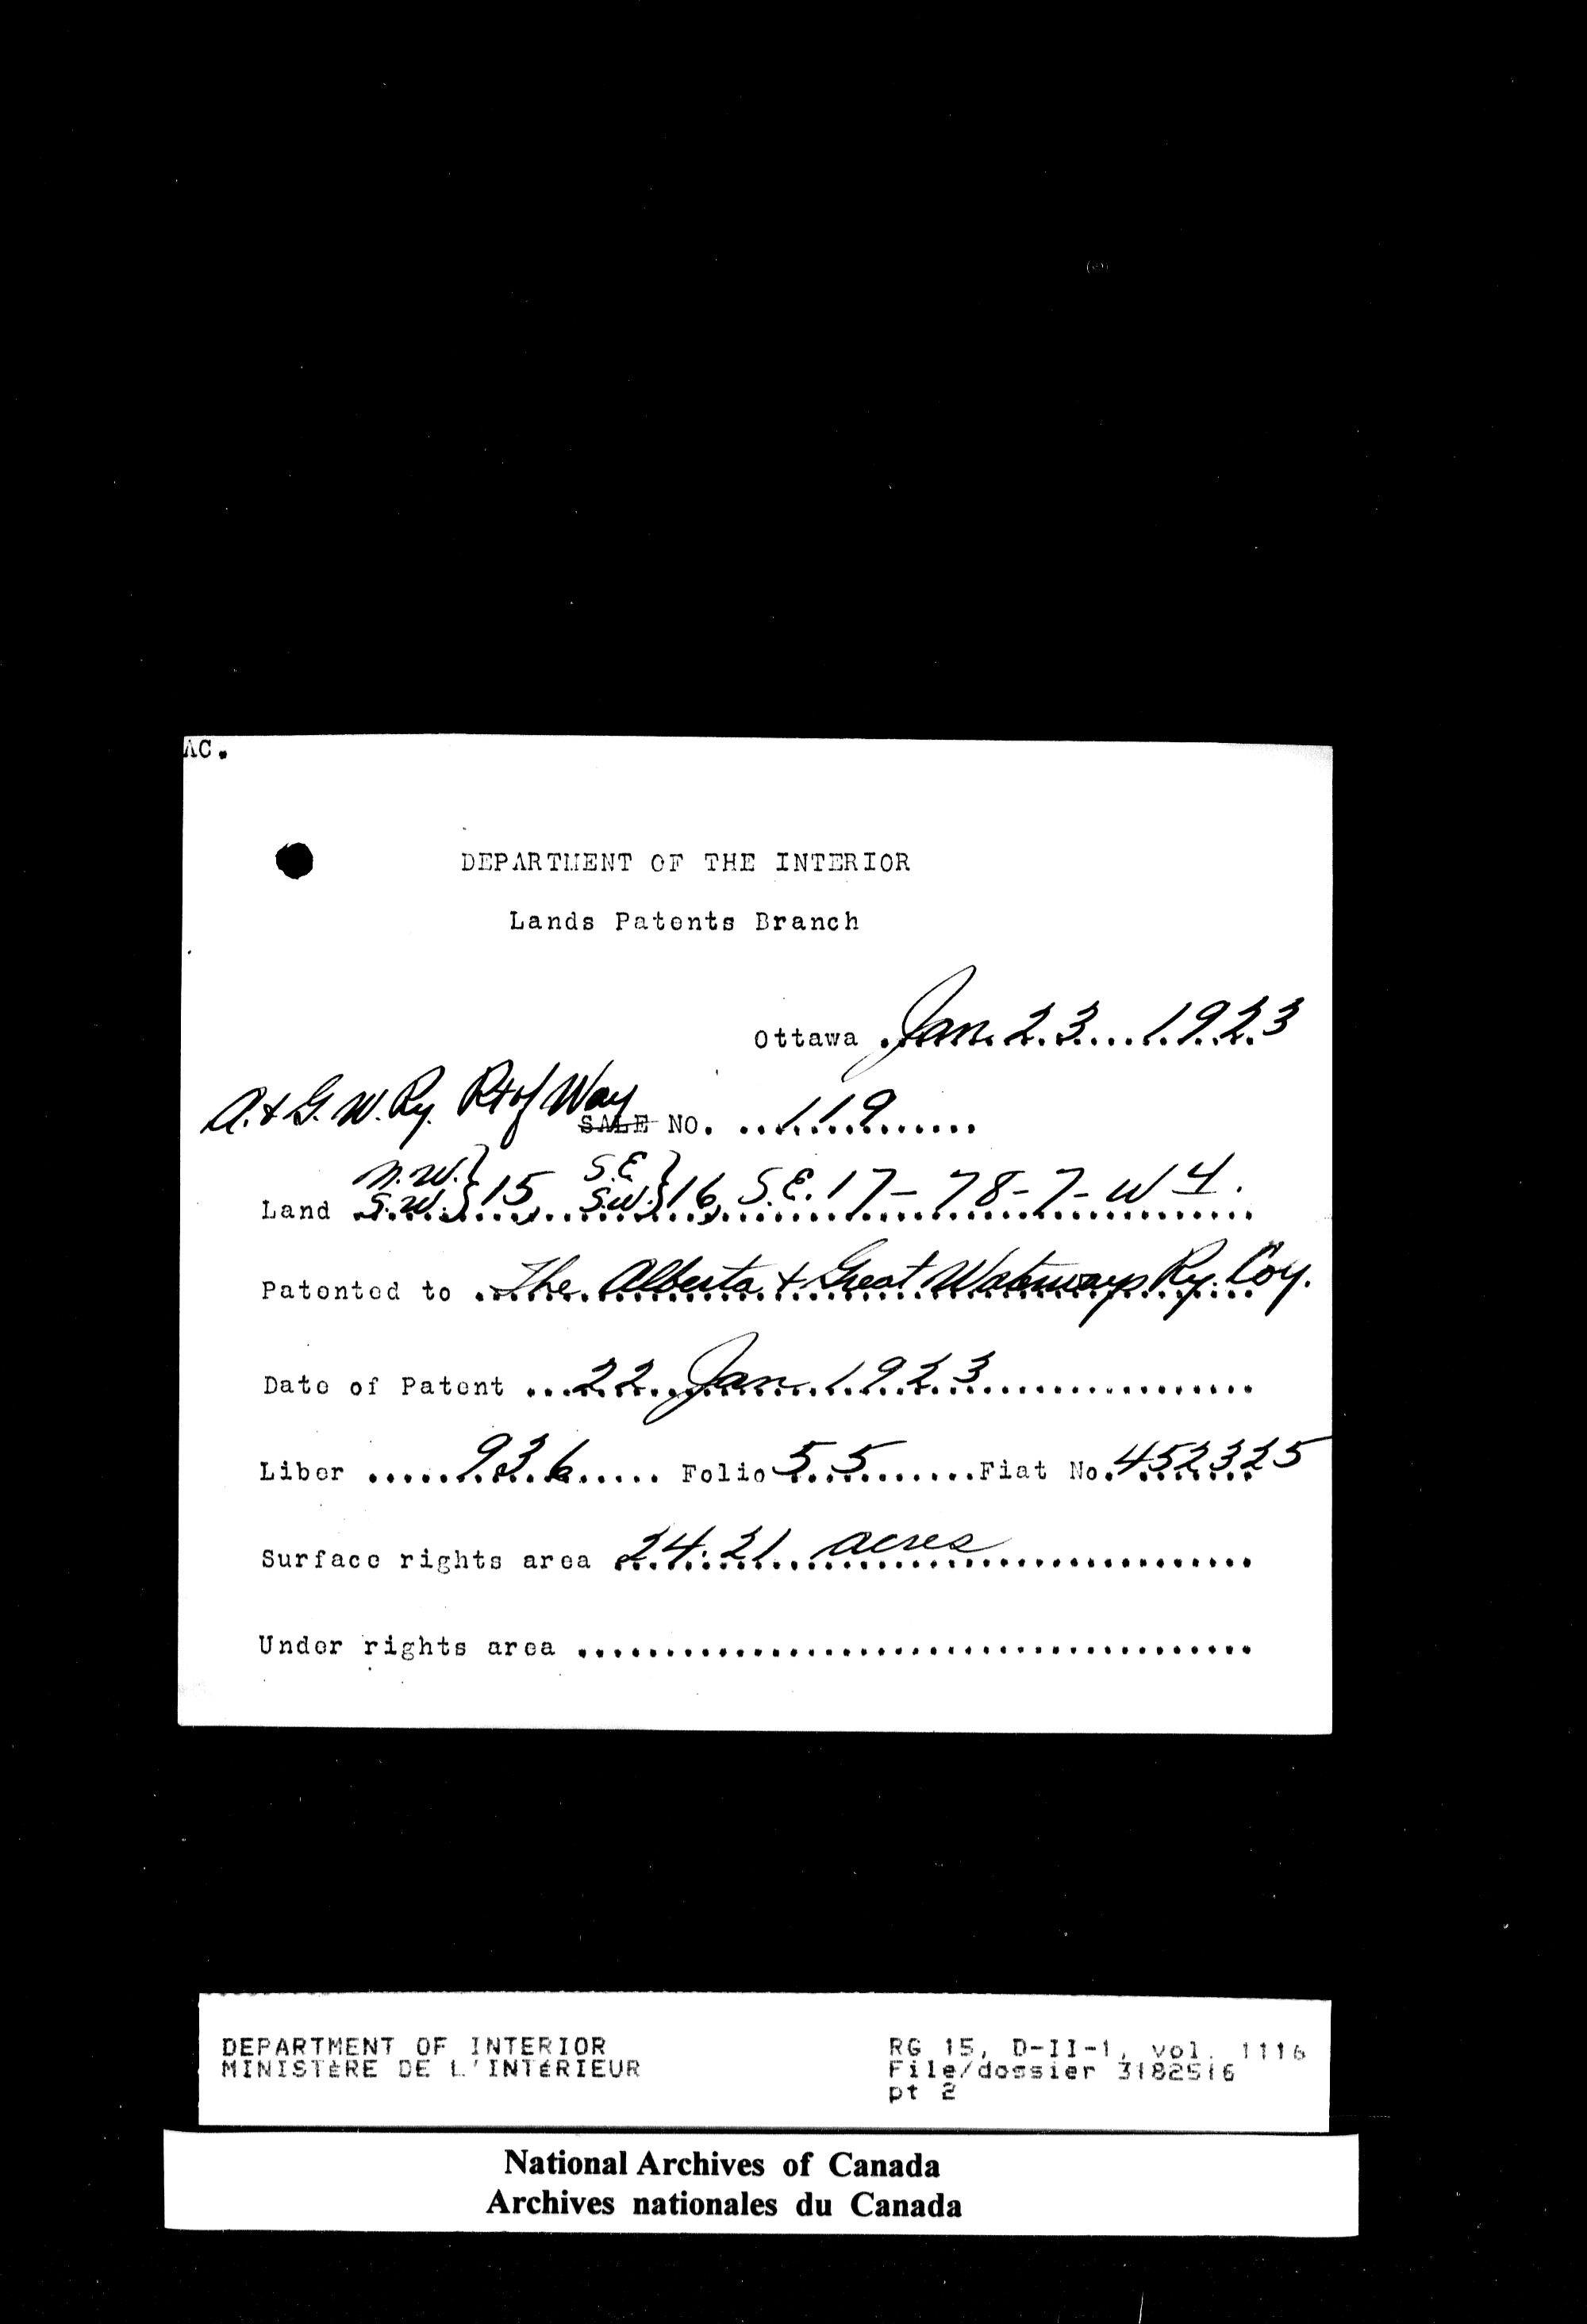 AC.
DEPARTMENT OF THE INTERIOR
Lands Patents Branch
Ottawa Jan. 23 1923
A. & G. W. Ry. Rt of Way SALE NO. 119
N.W. } S.E. }
Land S.W. } 15, S.W. } 16, S.E. 17 - 78 - 7 - W 4.
Patented to The Alberta & Great Waterways Ry. Coy.
Date of Patent 22 Jan. 1923
Liber 936 Folio 55 Fiat No. 452325
Surface rights area 24.21 acres
Under rights area
DEPARTMENT OF INTERIOR RG 15, D-II-1, vol. 1116
MINISTÈRE DE L'INTÉRIEUR File/dossier 3182516
pt 2
National Archives of Canada
Archives nationales du Canada